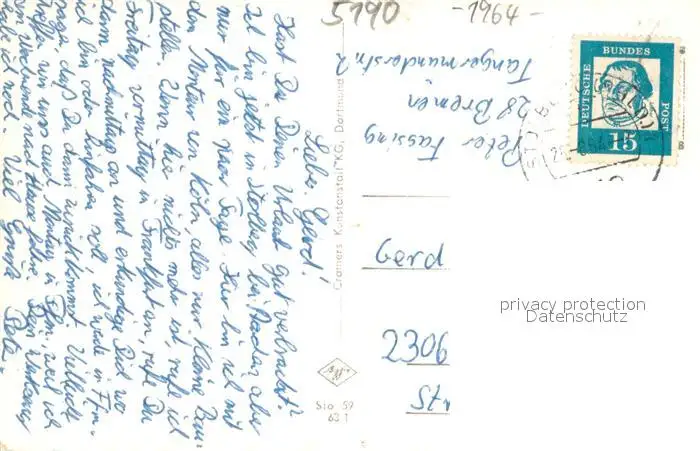 5190
-1964-
DEUTSCHE
BUNDES
POST
15
Peter Fassing
28 Bremen
Tangermünderstr. 2
Lieber Gerd!
Hast Du Deinen Urlaub gut verbracht?
Ich bin jetzt in Stolberg bei Aachen, aber
nur für ein paar Tage. Hier bin ich mit
den Monteur in Köln, alles nur kleine Bau-
stellen. Wenn hier nichts mehr ist, rufe ich
Freitag vormittag in Frankfurt an, rufe Du
dann nachmittag an und erkundige Dich wo
ich bin oder hinfahren soll, ich würde in Ffm.
sagen, daß Du dann zurückkommst. Vielleicht
treffen wir uns auch Montag in Ffm, weil ich
am Wochenende nach Hause fahre. Dein
habe ich noch. Viel Grüße Peter
Cramers Kunstanstalt KG, Dortmund
Sto 59
63 1
Gerd
2306
Str
privacy protection
Datenschutz